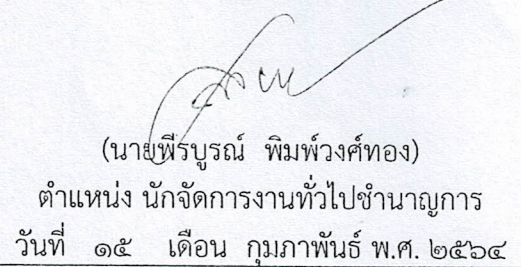 (นายพีรบูรณ์ พิมพ์วงศ์ทอง)
ตำแหน่ง นักจัดการงานทั่วไปชำนาญการ
วันที่ ๑๕ เดือน กุมภาพันธ์ พ.ศ. ๒๕๖๔